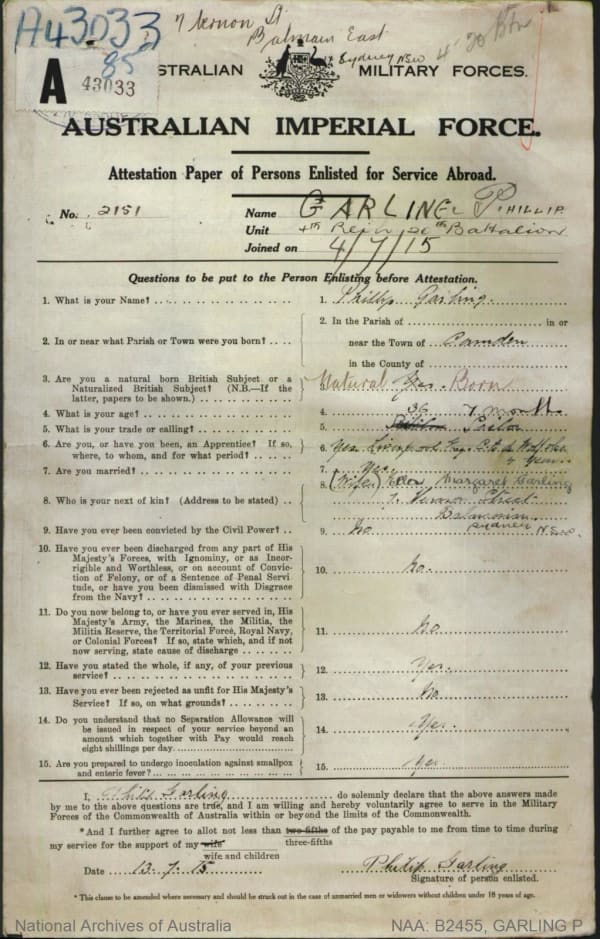 A43033
7 Vernon St
Balmain East
Sydney NSW
85
43033
A
STRALIAN MILITARY FORCES.
AUSTRALIAN IMPERIAL FORCE.
Attestation Paper of Persons Enlisted for Service Abroad.
No. 2151 Name GARLING Phillip
Unit 4th Rein 20th Battalion
Joined on 4/7/15
Questions to be put to the Person Enlisting before Attestation.
1. What is your Name? 1. Phillip Garling.
2. In or near what Parish or Town were you born? 2. In the Parish of in or
near the Town of Camden
in the County of
3. Are you a natural born British Subject or a Naturalized British Subject? (N.B.—If the latter, papers to be shown.) Natural Yes. Born
4. What is your age? 4. 36 7 months
5. What is your trade or calling? 5. Sailor
6. Are you, or have you been, an Apprentice? If so, where, to whom, and for what period? 6. Yes. years
7. Are you married? 7. Yes.
8. Who is your next of kin? (Address to be stated) 8. (Wife) Ellen Margaret Garling
7. Vernon Street
Balmain
Sydney N.S.W.
9. Have you ever been convicted by the Civil Power? 9. No
10. Have you ever been discharged from any part of His Majesty's Forces, with Ignominy, or as Incorrigible and Worthless, or on account of Conviction of Felony, or of a Sentence of Penal Servitude, or have you been Dismissed with Disgrace from the Navy? 10. No.
11. Do you now belong to, or have you ever served in, His Majesty's Army, the Marines, the Militia, the Militia Reserve, the Territorial Force, Royal Navy, or Colonial Forces? If so, state which, and if not now serving, state cause of discharge 11. No
12. Have you stated the whole, if any, of your previous service? 12. Yes.
13. Have you ever been rejected as unfit for His Majesty's Service? If so, on what grounds? 13. No
14. Do you understand that no Separation Allowance will be issued in respect of your service beyond an amount which together with Pay would reach eight shillings per day. 14. Yes.
15. Are you prepared to undergo inoculation against smallpox and enteric fever? 15. Yes.
I, Philip Garling do solemnly declare that the above answers made
by me to the above questions are true, and I am willing and hereby voluntarily agree to serve in the Military
Forces of the Commonwealth of Australia within or beyond the limits of the Commonwealth.
*And I further agree to allot not less than two-fifths of the pay payable to me from time to time during
three-fifths
my service for the support of my wife
wife and children
Date 13.7.15 Philip Garling
Signature of person enlisted.
* This clause to be amended where necessary and should be struck out in the case of unmarried men or widowers without children under 18 years of age.
National Archives of Australia NAA: B2455, GARLING P